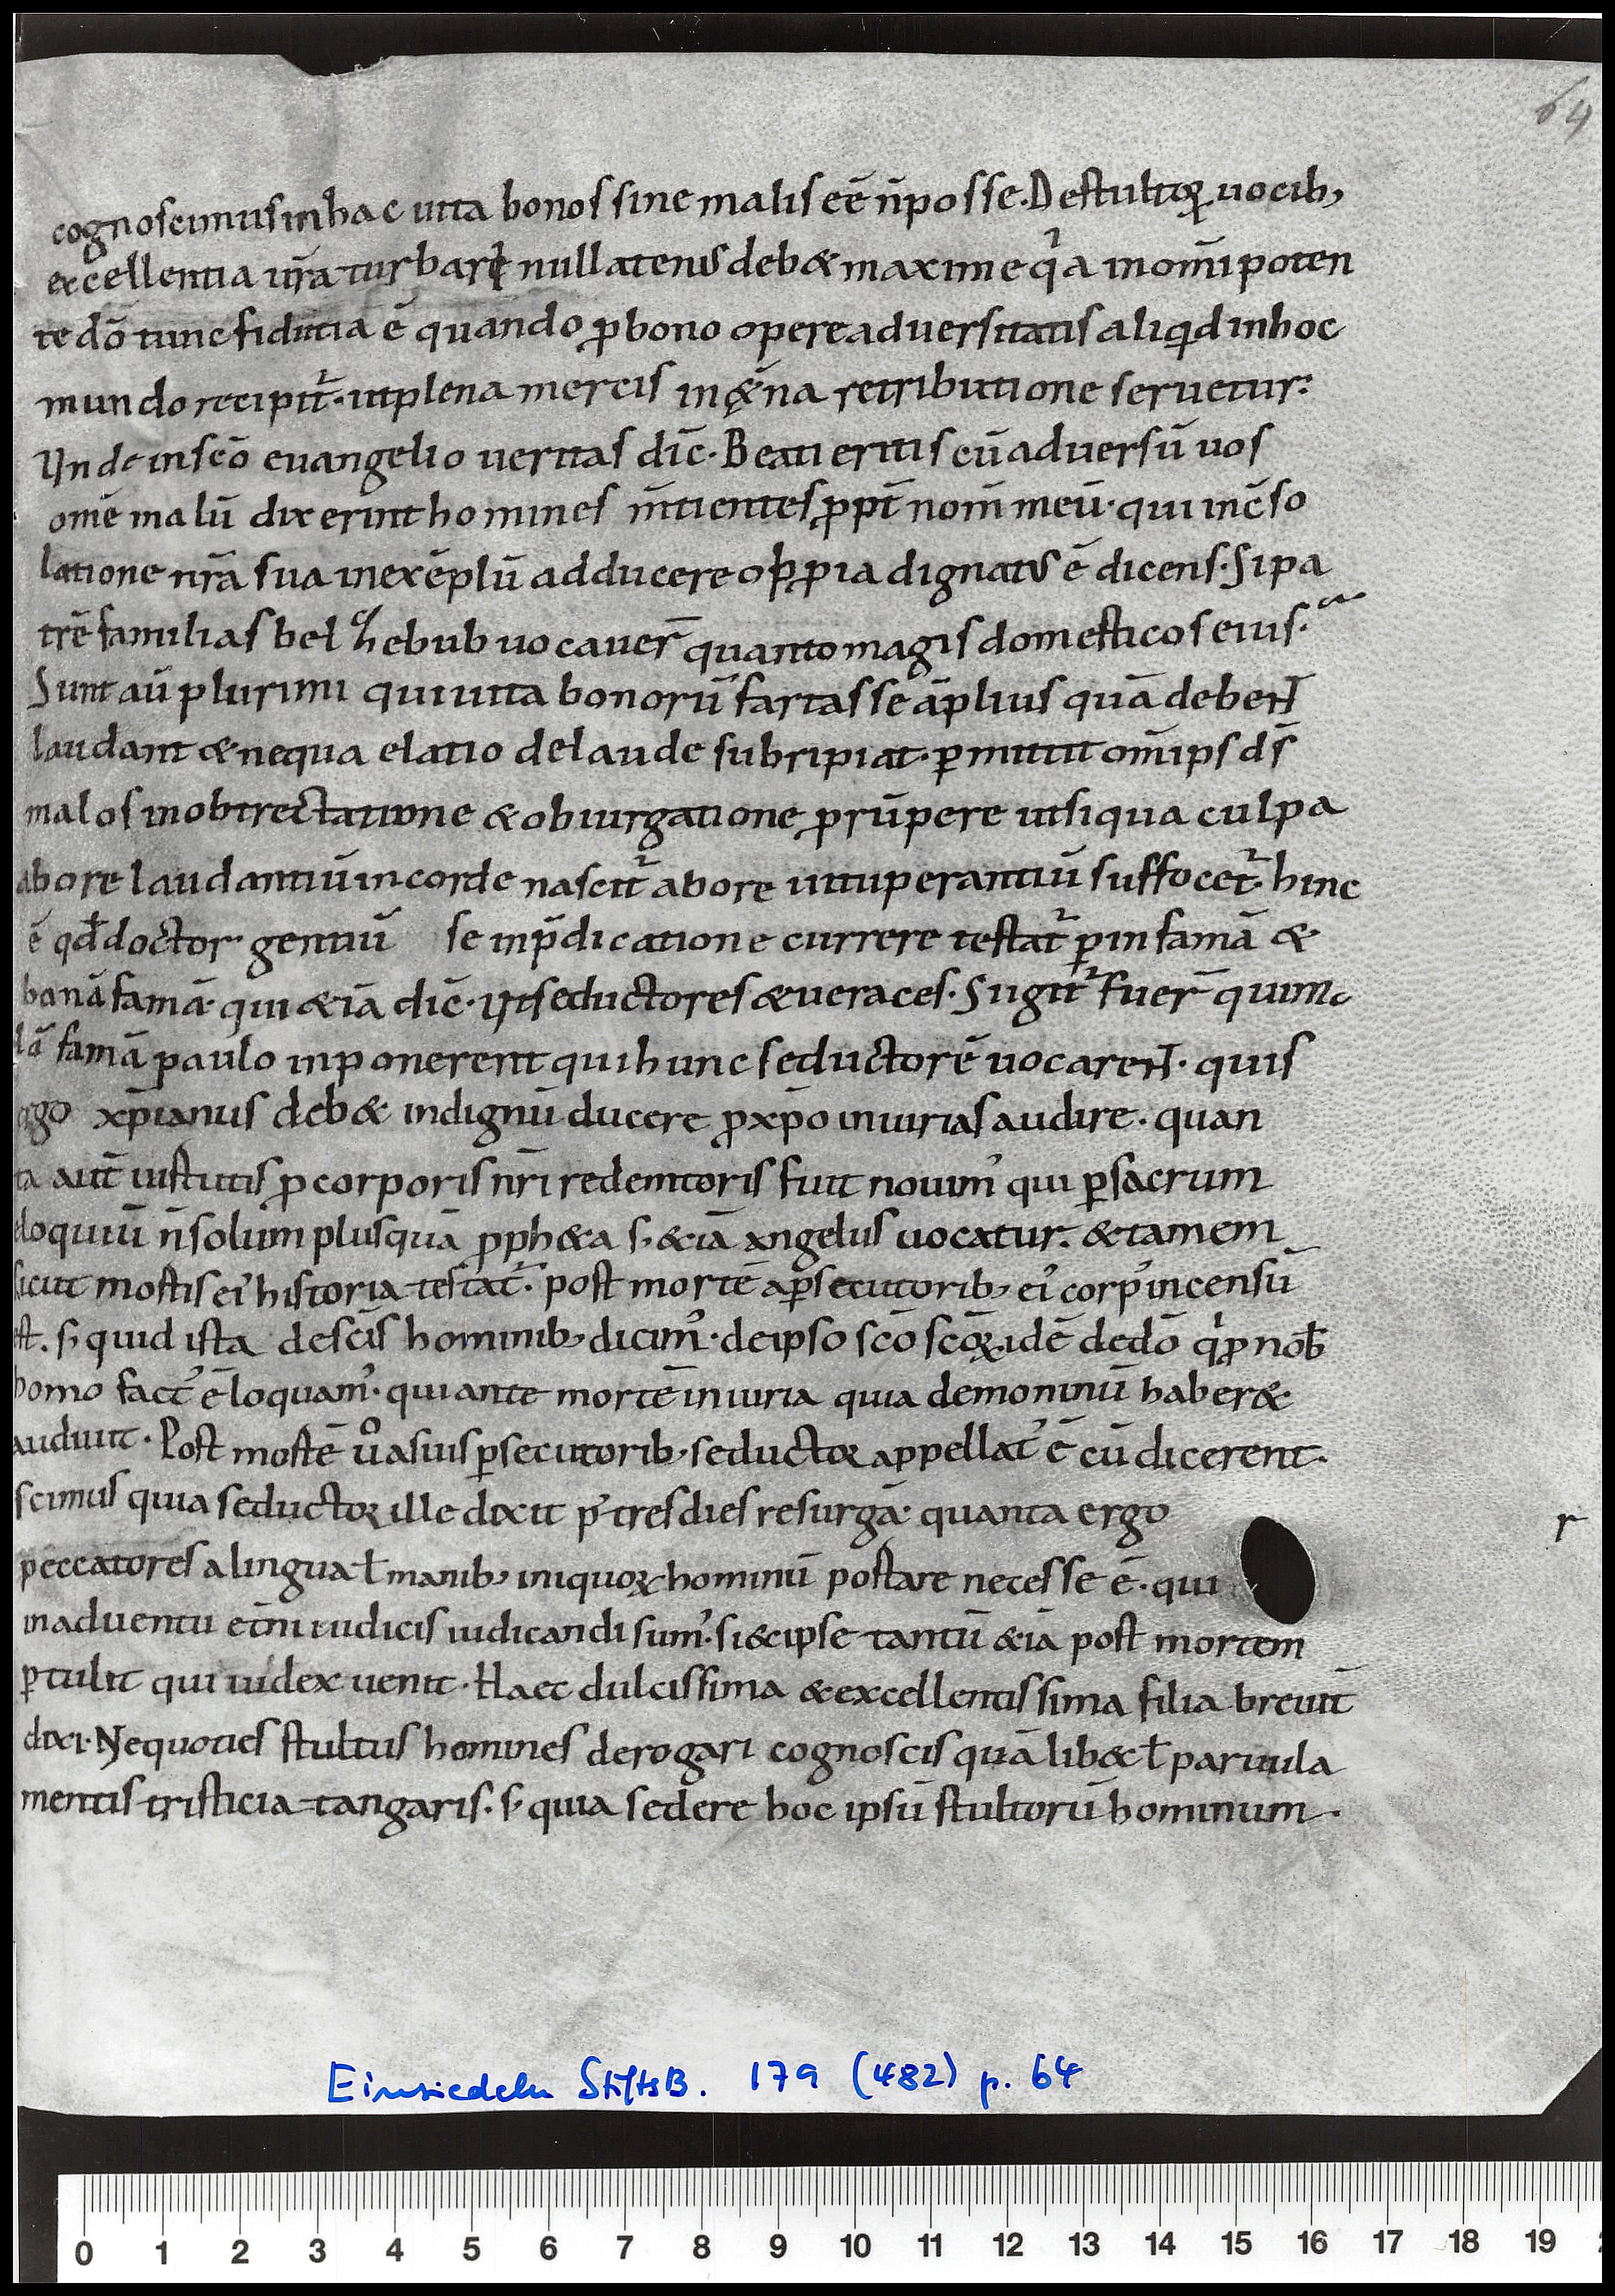 64
cognoscimus in hac uita bonos sine malis eē n̄ posse. De stultoꝝ uocib;
excellentia ur̄a turbari nullatenus deb& maxime qͥa in om̄ipoten
te dō tunc fiducia ē quando ꝓ bono opere aduersitatis aliqd in hoc
mundo recipit᷑. ut plena mercis in &̨na retributione seruetur.
Unde in scō euangelio ueritas dic̄. Beati eritis cū aduersū uos
om̄e malū dixerint homines m̄tientes ꝓpt̄ nom̄ meū. qui in c̄so
latione nr̄a sua in exēplū adducere opꝓpia dignatus ē dicens. Si pa
trē familias bel hebub uocauer̄ quanto magis domesticos eius.
Sunt aū plurimi qui uita bonorū fartasse āplius quā debeNT
laudant & ne qua elatio de laude subripiat. ꝑmittit om̄ips ds̄
malos in obtrectatione & obiurgatione ꝓrūpere ut si qua culpa
ab ore laudantiū in corde nascit᷑ ab ore uituperantiū suffocet᷑. hinc
ē qd̄ doctor gentiū se in p̄dicatione currere testat᷑ ꝑ infamā &
bonā famā. qui &iā dic̄. ut seductores & ueraces. Si igit᷑ fuer̄ qui ma
lā famā paulo inponerent qui hunc seductorē uocareNT. quis
ergo xp̄ianus deb& indignū ducere ꝓ xp̄o iniurias audire. quan
ta aut̄ iustitiis p̄corporis nr̄i redemtoris fuit nouim᾽ qui ꝑ sacrum
eloquiū n̄ solum plusquā ꝓph&a s; &iā angelus uocatur. & tamem
sicut mostis ei᾽ historia testat᷑. post mortē a ꝑsecutorib; ei᾽ corp᾽ incensū
est. s; quid ista de scīs hominib; dicim᾽. de ipso scō scōꝝ idē de dō qͥ ꝓ nob̄
homo fact᾽ ē loquam᾽. qui ante mortē iniuria quia demoninū haber&
audiuit. Post mostē ũ a suis ꝑsecutorib; seductoꝛ appellat᾽ ē cū dicerent.
scimus quia seductoꝛ ille dixit p᾽ tres dies resurgā. quanta ergo
r
peccatores a lingua ł manib; iniquoꝝ hominū postare necesse ē. qui
in aduentu et̄ni iudicis iudicandi sum᾽. si & ipse tantū &iā post mortem
ꝑtulit qui iudex uenit. Haec dulcissima & excellentissima filia breuit̄
dixi. Ne quoties stultus homines derogari cognoscis quā lib& ł paruula
mentis tristicia tangaris. s; quia sedere hoc ipsū stultorū hominum.
Einsiedeln StiftsB. 179 (482) p. 64
0 1 2 3 4 5 6 7 8 9 10 11 12 13 14 15 16 17 18 19